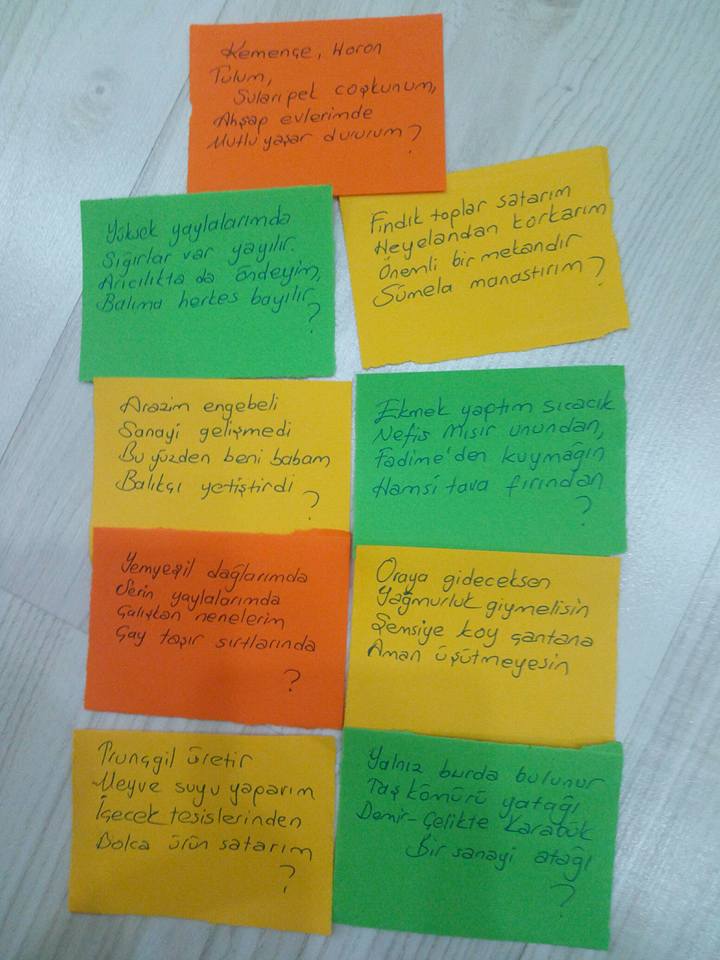 Kemençe, Horon
Tulum,
Suları pek coşkunum,
Ahşap evlerimde
Mutlu yaşar dururum?
Yüksek yaylalarımda
Sığırlar var yayılır.
Arıcılıkta da öndeyim,
Balıma herkes bayılır
?
Fındık toplar satarım
Heyelandan korkarım
Önemli bir mekandır
Sümela manastırım?
Arazim engebeli
Sanayi gelişmedi
Bu yüzden beni babam
Balıkçı yetiştirdi
?
Ekmek yaptım sıcacık
Nefis mısır unundan,
Fadime'den kuymağın
Hamsi tava fırından
?
Yemyeşil dağlarımda
Serin yaylalarımda
Çalışkan nenelerim
Çay taşır sırtlarında
?
Oraya gideceksen
Yağmurluk giymelisin
Şemsiye koy çantana
Aman üşütmeyesin
Trunçgil üretir
Meyve suyu yaparım
İçecek tesislerinden
Bolca ürün satarım
?
Yalnız burda bulunur
Taş kömürü yatağı
Demir-Çelikte Karabük
Bir sanayi atağı
?